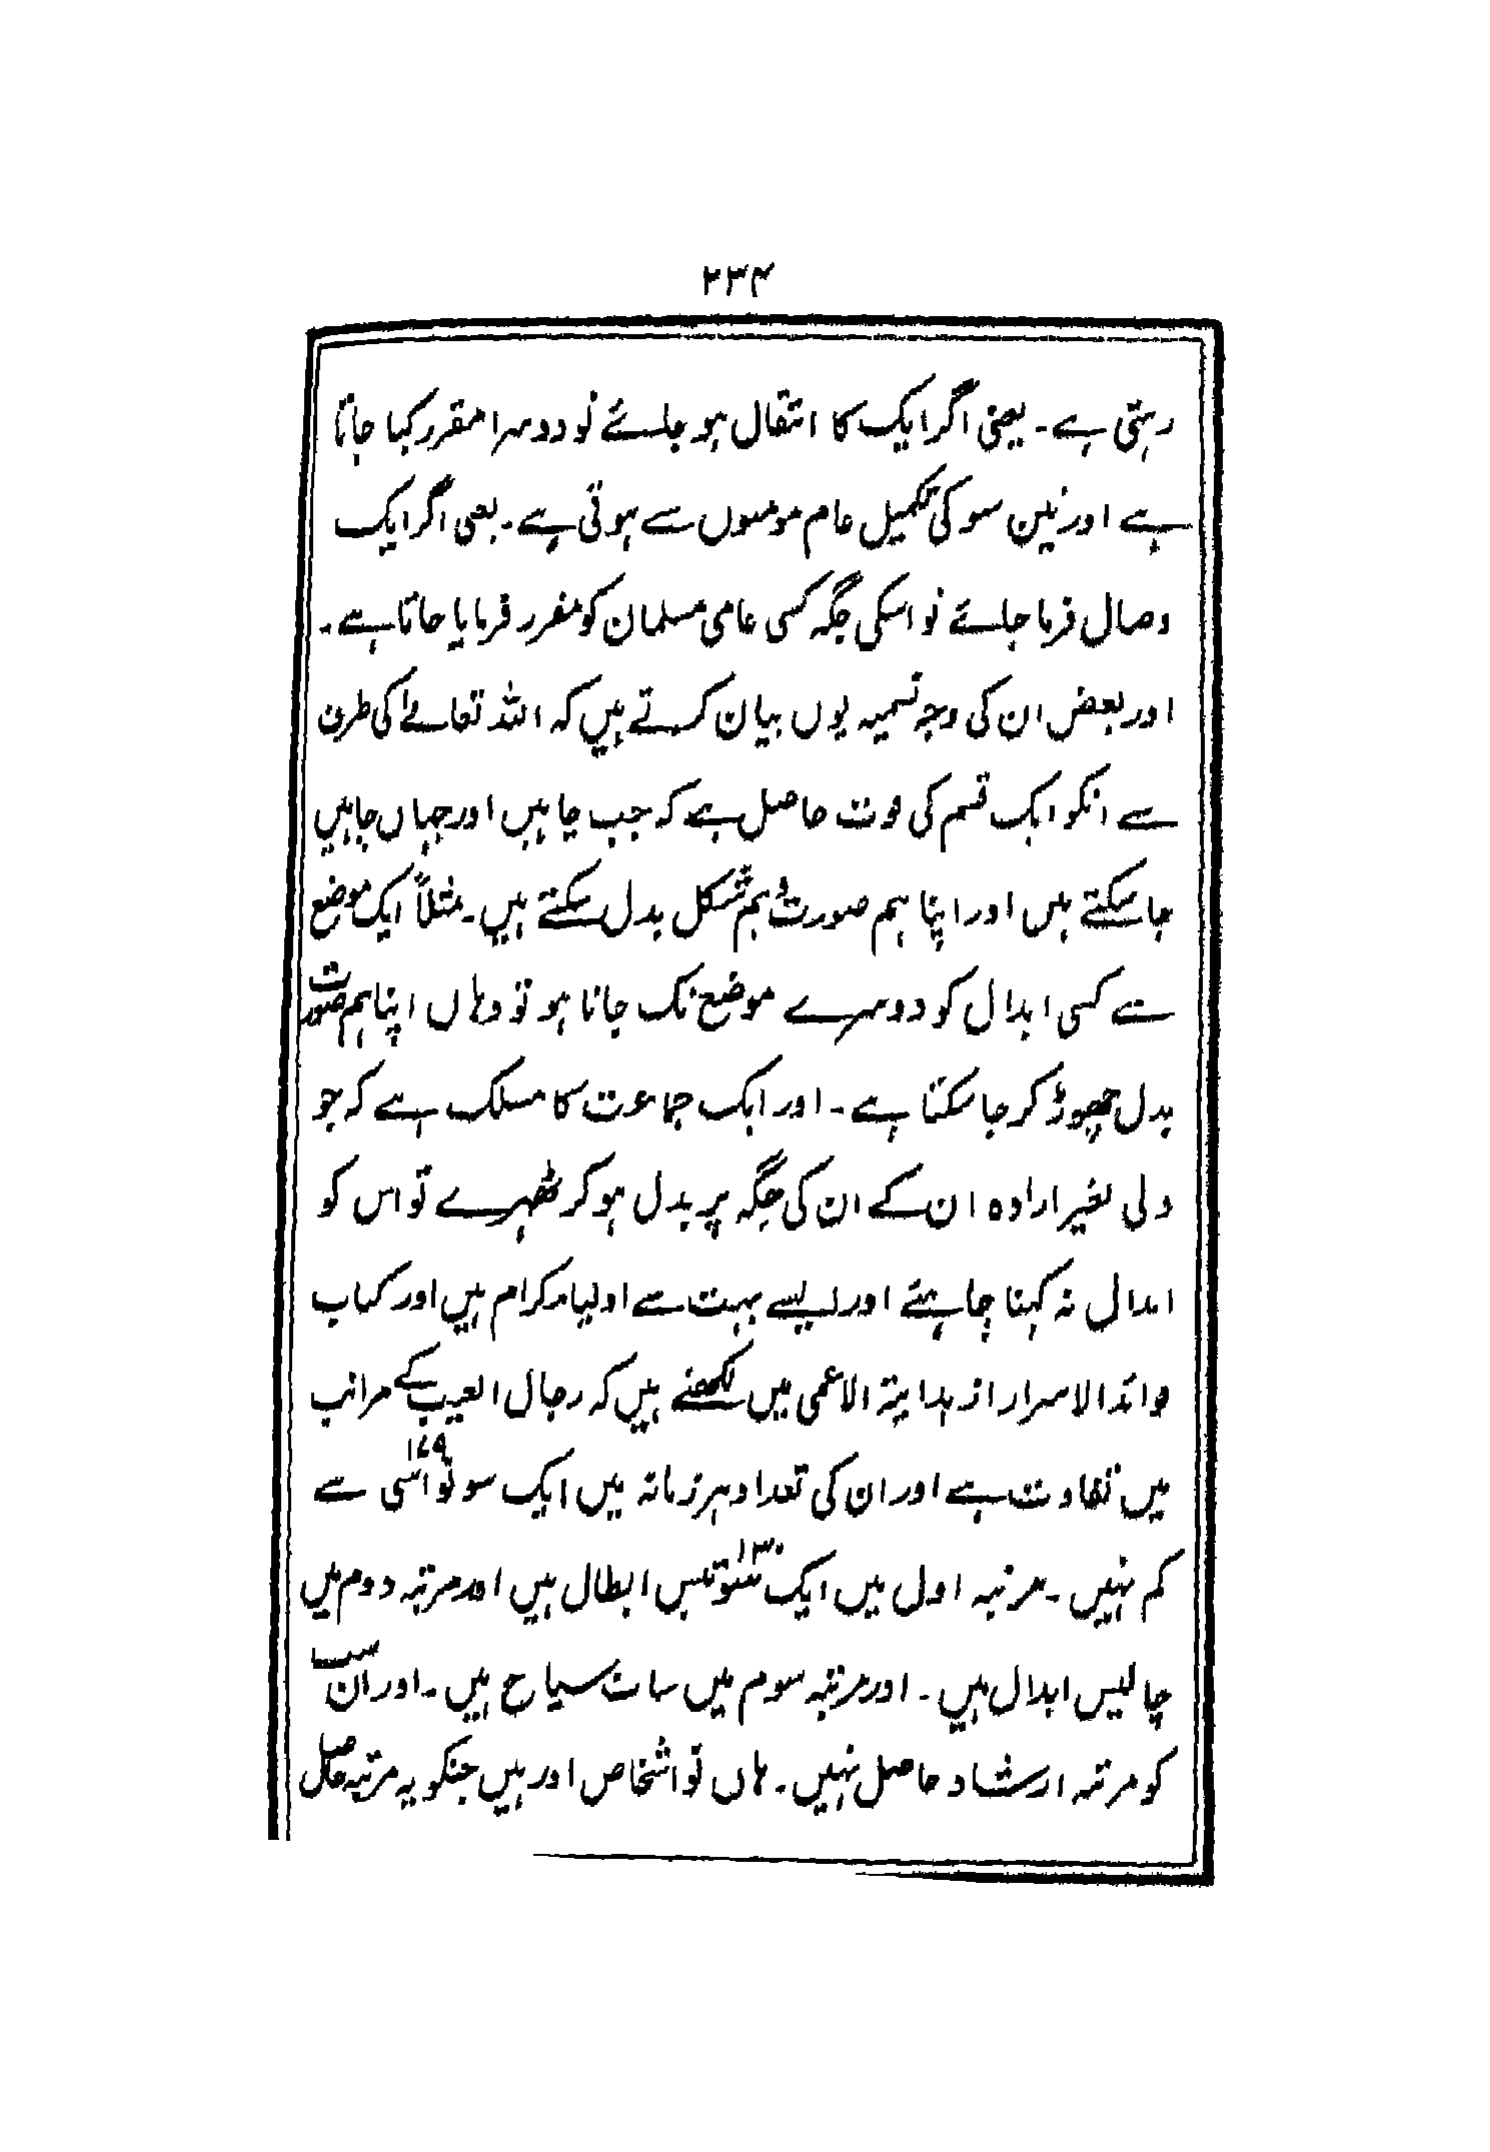 ۲۳۴
رہتی ہے۔ یعنی اگر ایک کا انتقال ہو جائے تو دوسرا مقرر کیا جاتا
ہے اور تین سو کی تکمیل عام مومنوں سے ہوتی ہے۔ یعنی اگر ایک
وصال فرما جائے تو اسکی جگہ کسی عامی مسلمان کو مقرر فرمایا جاتا ہے۔
اور بعض ان کی وجہ تسمیہ یوں بیان کرتے ہیں کہ اللہ تعالےٰ کی طرف
سے انکو ایک قسم کی قوت حاصل ہے کہ جب چاہیں اور جہاں چاہیں
جا سکتے ہیں اور اپنا ہم صورت و ہم شکل بدل سکتے ہیں۔ مثلاً ایک موضع
سے کسی ابدال کو دوسرے موضع تک جانا ہو تو وہاں اپنا ہم صورت
بدل چھوڑ کر جا سکتا ہے۔ اور ایک جماعت کا مسلک ہے کہ جو
ولی بغیر ارادہ ان کے ان کی جگہ پر بدل ہو کر ٹھہرے تو اس کو
ابدال نہ کہنا چاہئے اور ایسے بہت سے اولیاء کرام ہیں اور کتاب
فوائد الاسرار از ہدایتہ الاعمی میں لکھتے ہیں کہ رجال الغیب کے مراتب
میں تفاوت ہے اور ان کی تعداد ہر زمانہ میں ایک سو نو اسی ۱۷۹ سے
کم نہیں۔ مرتبہ اول میں ایک سو تیس ۱۳۰ ابطال ہیں اور مرتبہ دوم میں
چالیس ابدال ہیں۔ اور مرتبہ سوم میں سات سیاح ہیں۔ اور ان سب
کو مرتبہ ارشاد حاصل نہیں۔ ہاں نو اشخاص اور ہیں جنکو یہ مرتبہ حاصل